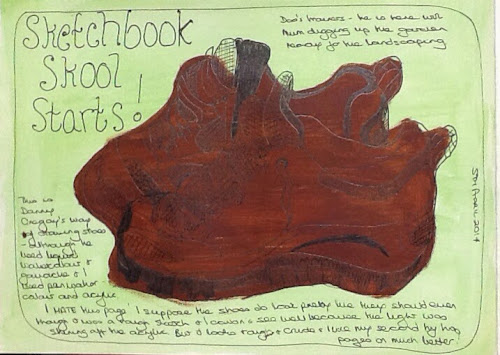 Sketchbook
Skool
Starts!
Dad's trainers - he is here with
Mum digging up the garden
ready for the landscaping
This is
Danny
Gregory's way
of drawing shoes
- although he
used liquid
watercolour &
gouache & I
used pen, water
colour and acrylic.
I HATE this page! I suppose the shoes do look pretty like they should even
though it was a rough sketch & I couldn't see well because the light was
shining off the acrylic. But it looks rough & crude & I like my second
pages so much better.
2014